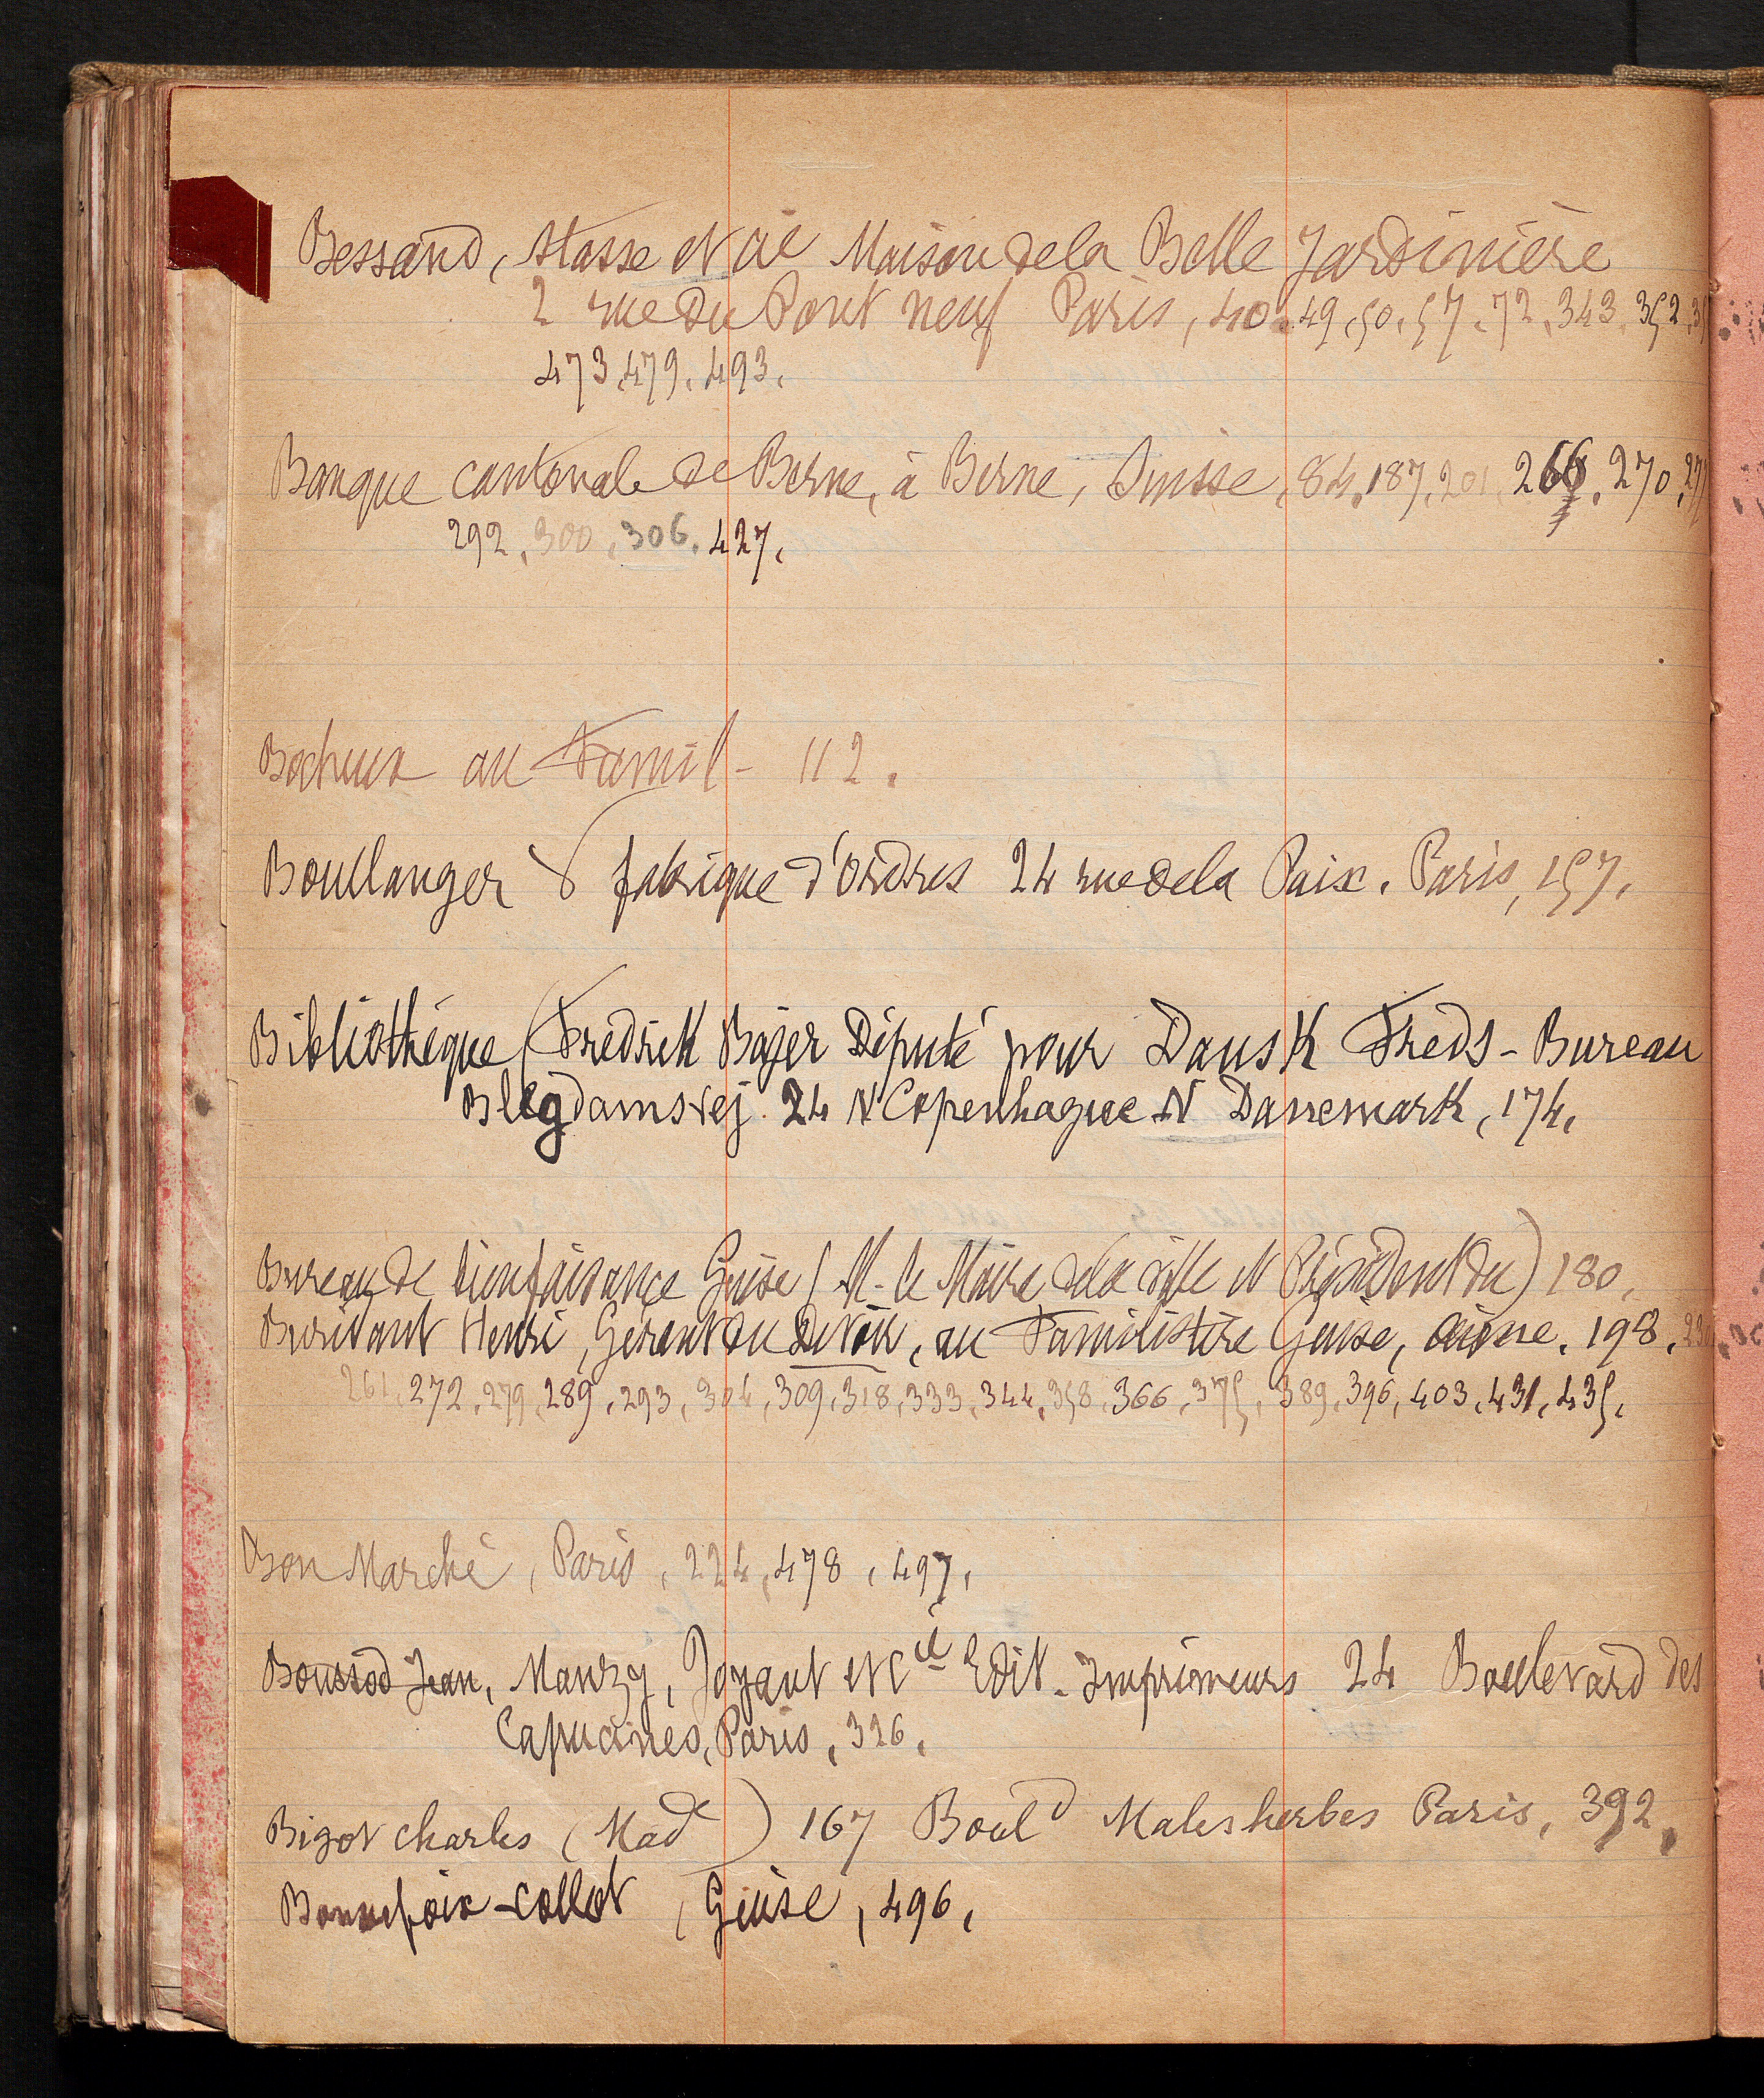 Bessand, Stasse et Cie Maison de la Belle Jardinière
2 rue du Pont neuf Paris, 40. 49. 50. 57. 72. 343. 352.
473. 479. 493.
Banque cantonale de Berne, à Berne, Suisse, 84. 187. 201. 266. 270.
292. 300. 306. 427.
au Famil- 112.
Boullanger fabrique d'Ordres 24 rue de la Paix. Paris, 157.
Bibliothèque (Fredrik Bajer Député pour Dansk Freds-Bureau
Blegdamsvej 24 N Copenhague N Danemark, 174.
Bureau de bienfaisance Guise (M. le Maire de la ville et Président du) 180.
Buridant Henri, Gérant du Devoir, au Familistère Guise, Aisne. 198.
261. 272. 279. 289. 293. 304. 309. 318. 333. 344. 358. 366. 375. 389. 396. 403. 431. 435.
Bon Marché, Paris, 224. 478. 497.
Boussod Jean, Manzy, Joyant et Cie Edit. Imprimeurs 24 Boulevard des
Capucines, Paris, 326.
Bigot Charles (Made) 167 Bould Malesherbes Paris, 392.
Bonnefoix-Collot, Guise, 496.